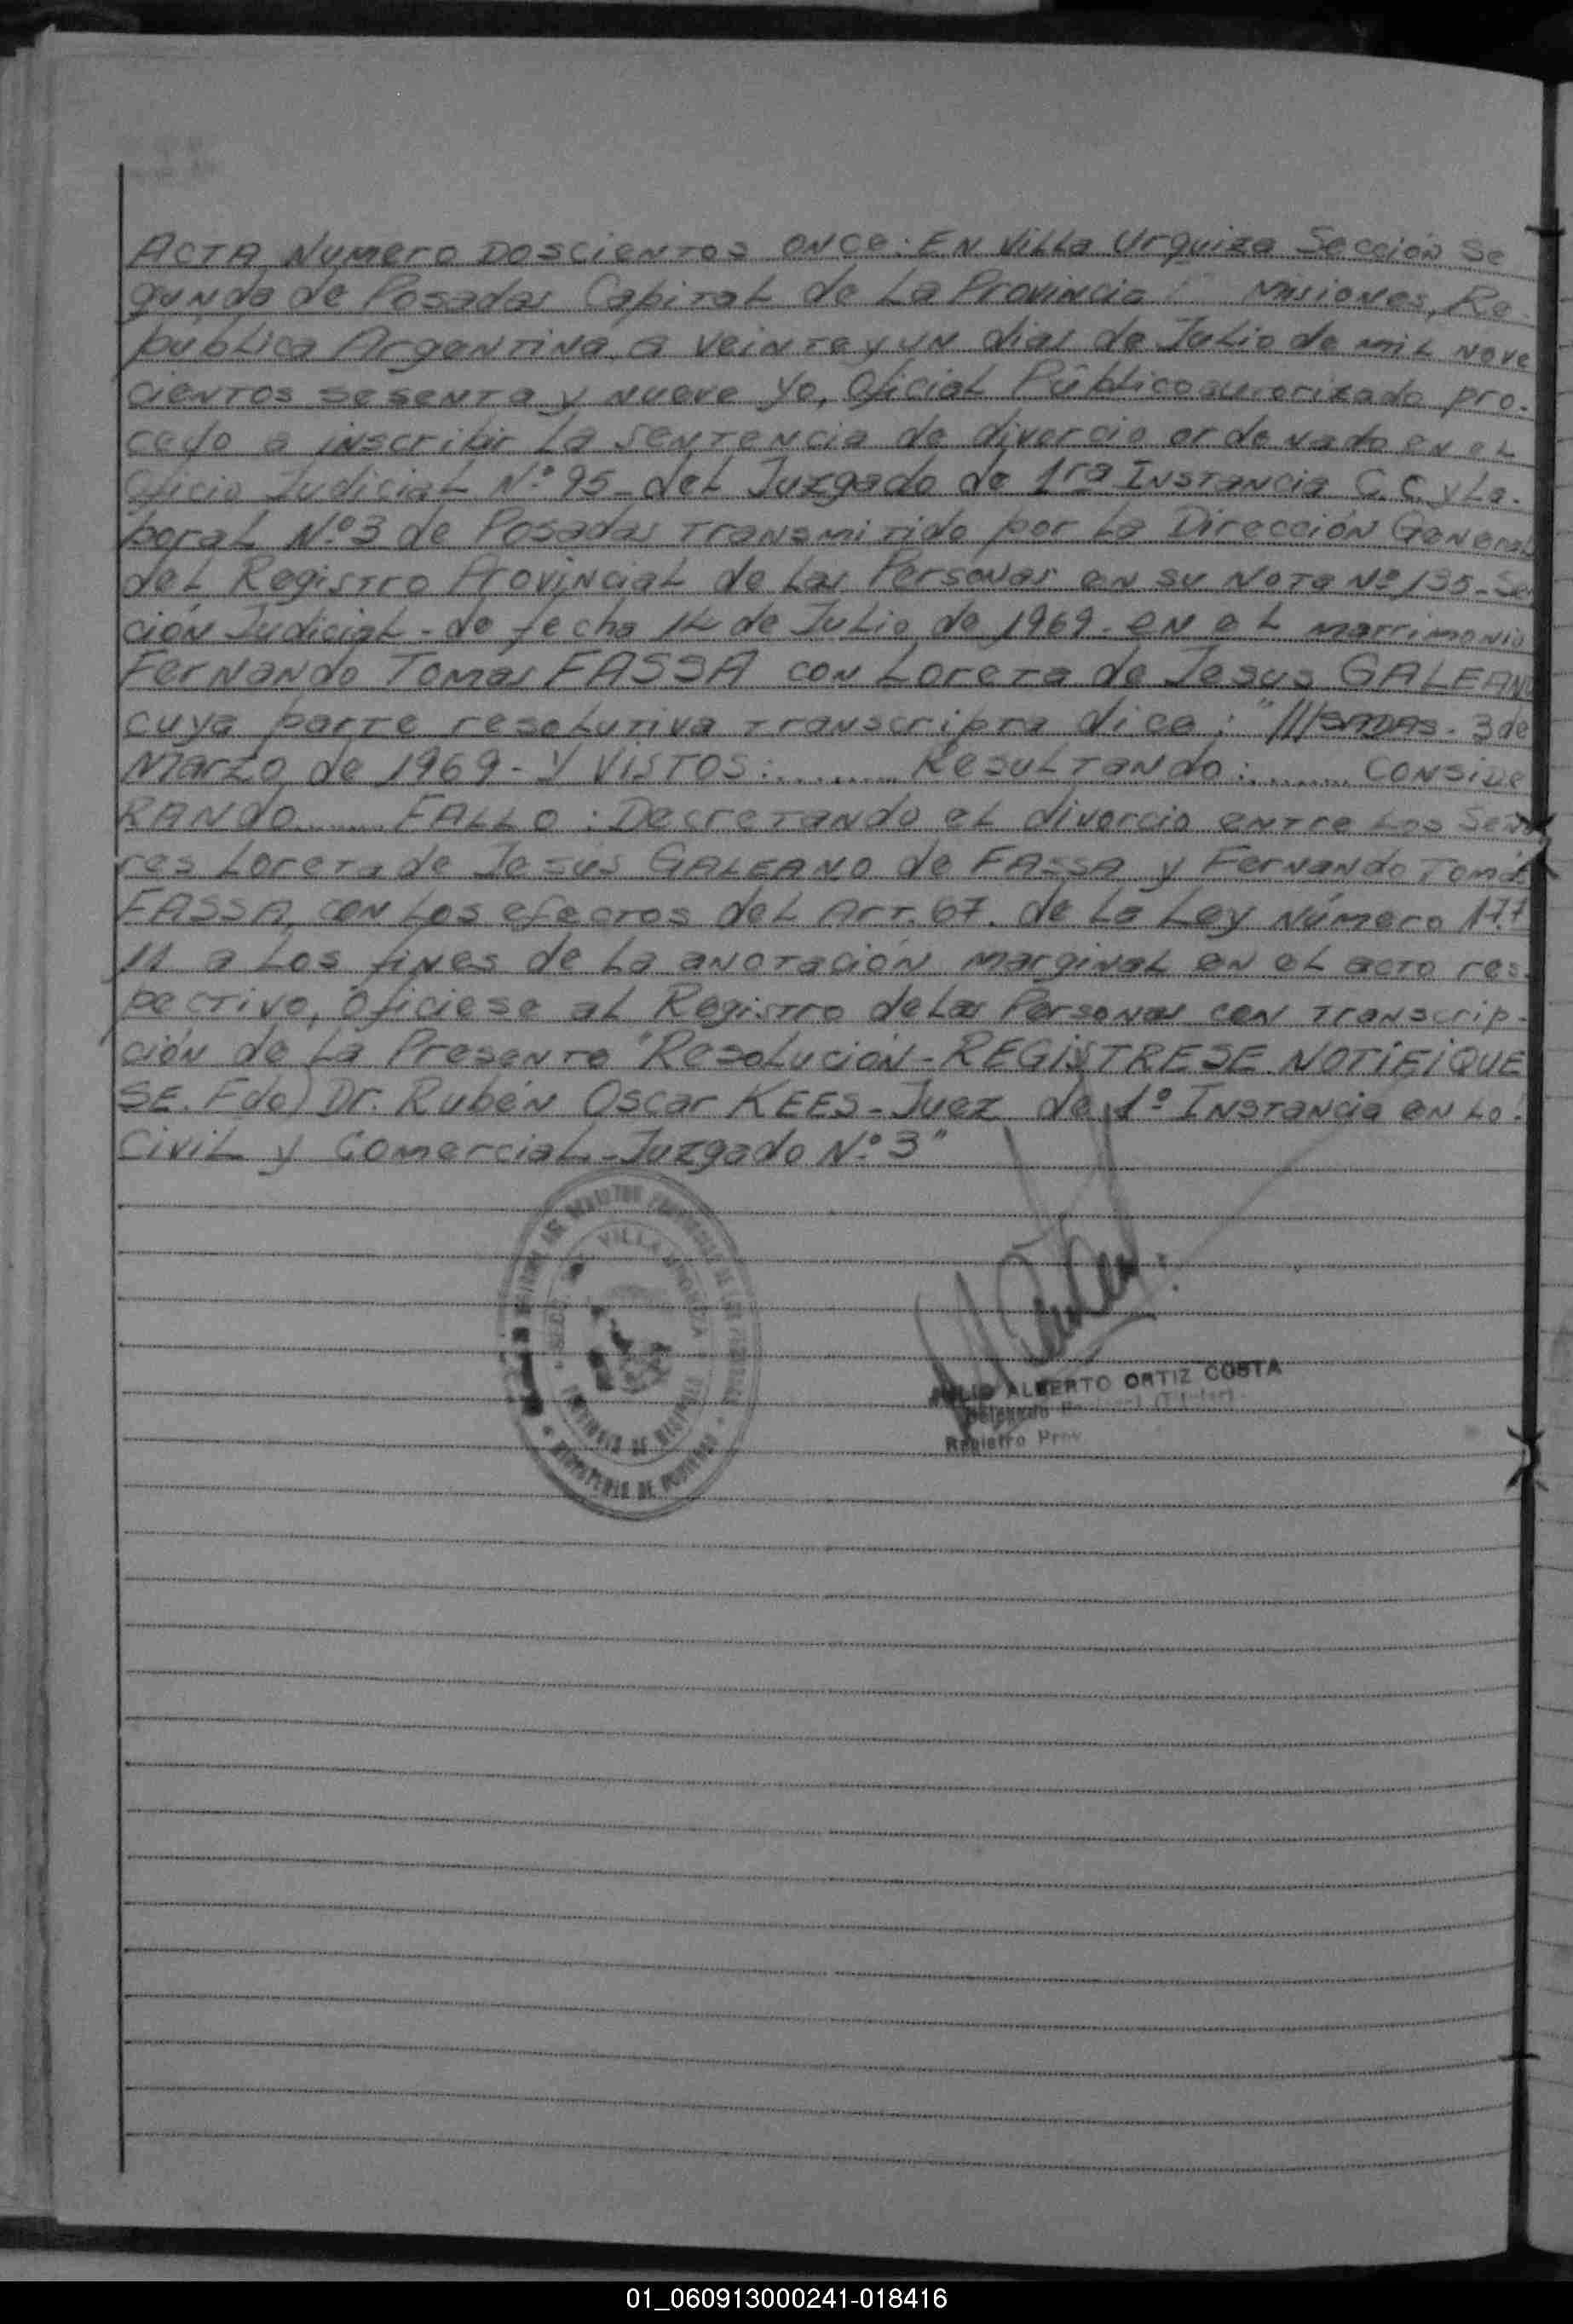 ACTA Numero DOSCIENTOS ONCE: EN VILLA Urquiza Sección Se
gunda de Posadas Capital de La Provincia Misiones, Re-
pública Argentina, a veinte y un dias de Julio de mil nove
cientos sesenta y nueve yo, Oficial Público autorizado pro-
cedo a inscribir la sentencia de divorcio ordenado en el
Oficio Judicial Nº 95- del Juzgado de 1ra Instancia C. C. y La-
boral Nº 3 de Posadas transmitido por la Dirección General
del Registro Provincial de las Personas en su Nota Nº 135- Sec
ción Judicial- de fecha 14 de Julio de 1969- en el matrimonio
Fernando Tomas FASSA con Loreta de Jesus GALEANO
cuya parte resolutiva transcripta dice: "///SADAS- 3 de
Marzo de 1969- Y VISTOS: ........ Resultando: ........ CONSIDE
RANDO ...... FALLO: Decretando el divorcio entre los Seño
res Loreta de Jesus GALEANO de FASSA y Fernando Tomás
FASSA, con los efectos del Art. 67. de la Ley Número 177
11 a los fines de la anotación marginal en el acto res-
pectivo, oficiese al Registro de las Personas con transcrip-
ción de la Presente "Resolución- REGISTRESE NOTIFIQUE
SE. Fdo) Dr. Rubén Oscar KEES- Juez de 1º Instancia en lo
Civil y Comercial- Juzgado Nº 3"
VILLA URQUIZA
PROVINCIA DE MISIONES
MINISTERIO DE GOBIERNO
JULIO ALBERTO ORTIZ COSTA
Delegado
Registro Prov
01_060913000241-018416